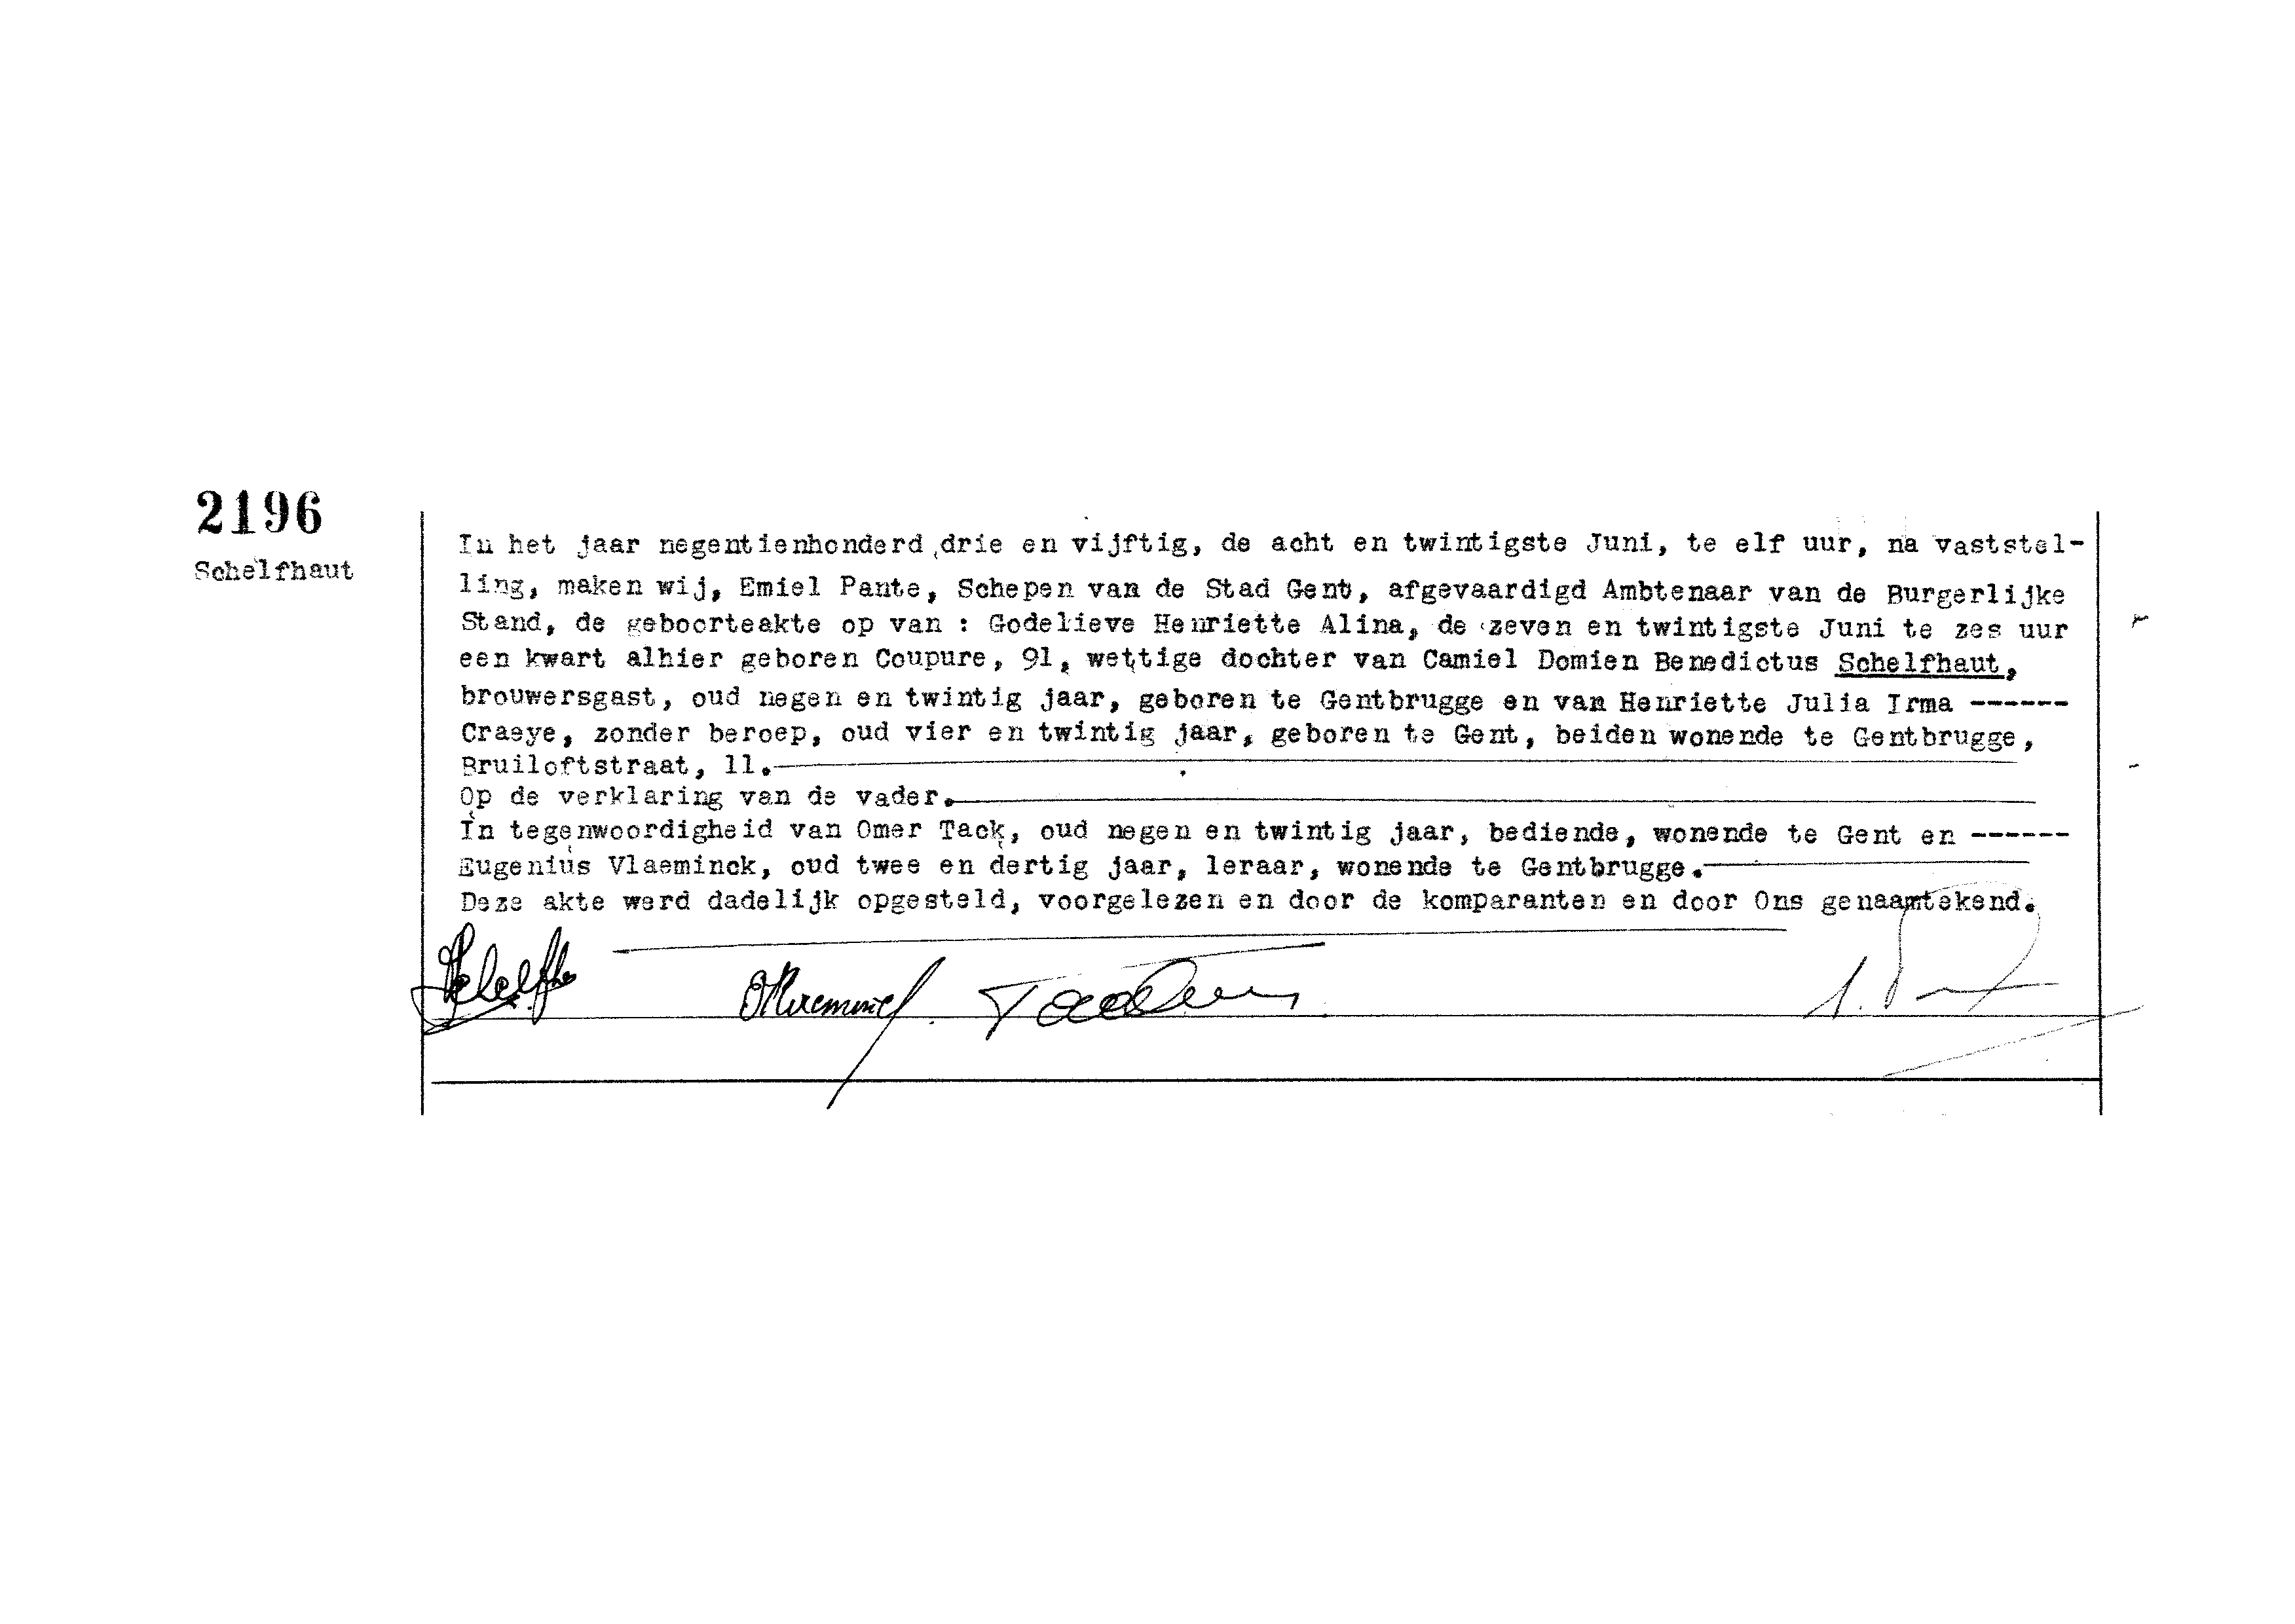 2196
Schelfhaut
In het jaar negentienhonderd drie en vijftig, de acht en twintigste Juni, te elf uur, na vaststel-
ling, maken wij, Emiel Pante, Schepen van de Stad Gent, afgevaardigd Ambtenaar van de Burgerlijke
Stand, de geboorteakte op van : Godelieve Henriette Alina, de zeven en twintigste Juni te zes uur
een kwart alhier geboren Coupure, 91, wettige dochter van Camiel Domien Benedictus Schelfhaut,
brouwersgast, oud negen en twintig jaar, geboren te Gentbrugge en van Henriette Julia Irma ------
Craeye, zonder beroep, oud vier en twintig jaar, geboren te Gent, beiden wonende te Gentbrugge,
Bruiloftstraat, 11.
Op de verklaring van de vader.
In tegenwoordigheid van Omer Tack, oud negen en twintig jaar, bediende, wonende te Gent en ------
Eugenius Vlaeminck, oud twee en dertig jaar, leraar, wonende te Gentbrugge.
Deze akte werd dadelijk opgesteld, voorgelezen en door de komparanten en door Ons genaamtekend.